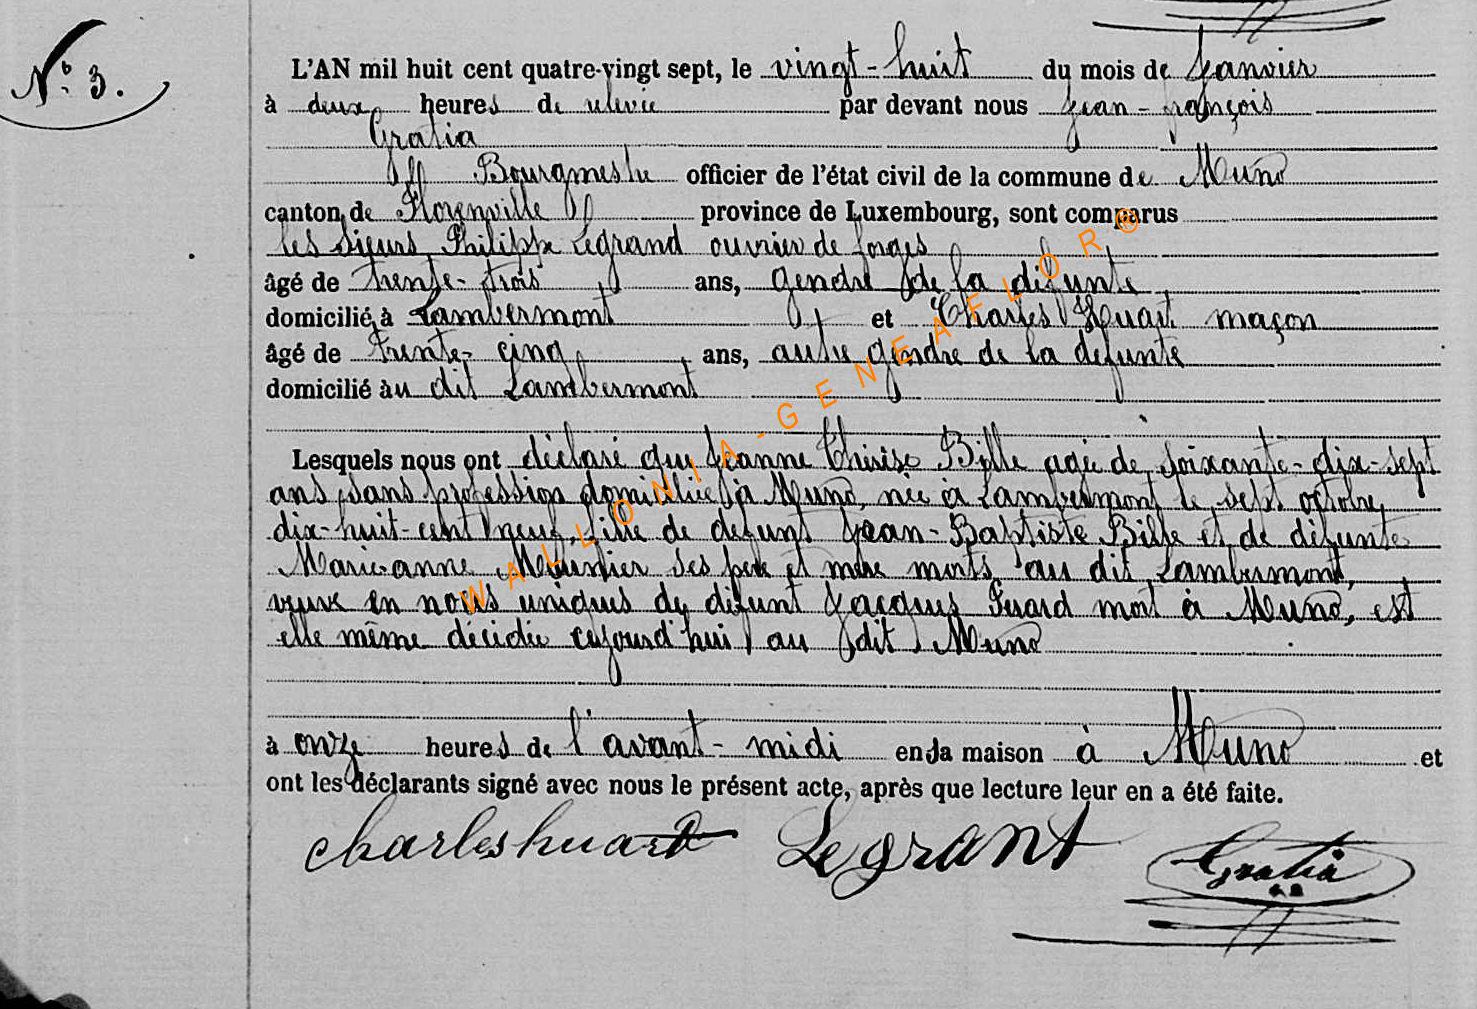 N° 3.
L'AN mil huit cent quatre-vingt sept, le vingt-huit du mois de Janvier
à deux heures de relevée par devant nous Jean-françois
Gratia
Bourgmestre officier de l'état civil de la commune de Muno
canton de Florenville province de Luxembourg, sont comparus
les sieurs Philippe Legrand ouvrier de forges
âgé de trente-trois ans, gendre de la défunte
domicilié à Lambermont et Charles Huart maçon
âgé de trente-cinq ans, autre gendre de la défunte
domicilié au dit Lambermont
Lesquels nous ont déclaré que Jeanne Thérèse Bille agée de soixante-dix-sept
ans, sans profession domiciliée à Muno, née à Lambermont le sept octobre
dix-huit-cent neuf, fille de défunt Jean-Baptiste Bille et de défunte
Marieanne Meunier ses père et mère morts au dit Lambermont,
veuve en noces uniques de défunt Jacques Suard mort à Muno, est
elle même décédée aujourd'hui au dit Muno
à onze heures de l'avant-midi en sa maison à Muno et
ont les déclarants signé avec nous le présent acte, après que lecture leur en a été faite.
charles huart Legrant Gratia
WALLONIA-GENEAFLOR®